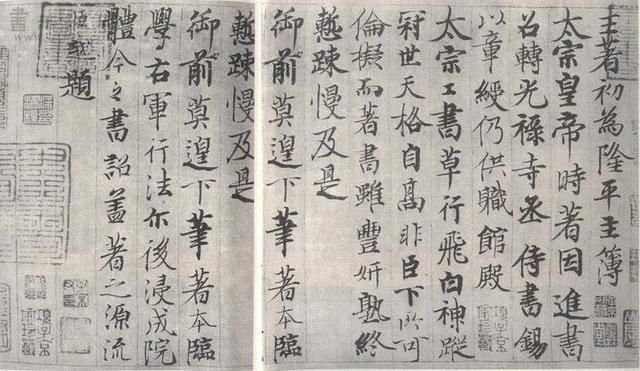 王著初為隆平主簿
太宗皇帝時著因進書
召轉光祿寺丞侍書錫
以章綬仍供職館殿
太宗工書草行飛白神蹤
冠世天格自高非臣下所可
倫擬而著書雖豐妍熟終
慙疎慢及是
御前莫遑下筆著本臨
慙疎慢及是
御前莫遑下筆著本臨
學右軍行法尔後浸成院
體今之書詔蓋著之源流
越題